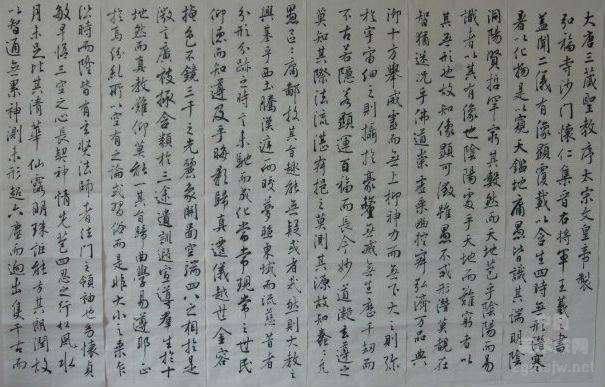 大唐三藏聖教序太宗文皇帝製
弘福寺沙門懷仁集晉右將軍王羲之書
蓋聞二儀有像顯覆載以含生四時無形潛寒
暑以化物是以窺天鑑地庸愚皆識其端明陰
洞陽賢哲罕窮其數然而天地苞乎陰陽而易
識者以其有像也陰陽處乎天地而難窮者以
其無形也故知像顯可徵雖愚不惑形潛莫覩在
智猶迷況乎佛道崇虛乘幽控寂弘濟萬品典
御十方舉威靈而無上抑神力而無下大之則彌
於宇宙細之則攝於豪釐無滅無生歷千劫而
不古若隱若顯運百福而長今妙道凝玄遵之
莫知其際法流湛寂挹之莫測其源故知蠢蠢凡
愚區區庸鄙投其旨趣能無疑惑者哉然則大教之
興基乎西土騰漢庭而皎夢照東域而流慈昔者
分形分跡之時言未馳而成化當常現常之世民
仰德而知遵及乎晦影歸真遷儀越世金容
掩色不鏡三千之光麗象開圖空端四八之相於是
微言廣被拯含類於三途遺訓遐宣導群生於十
地然而真教難仰莫能一其旨歸曲學易遵邪正
於焉紛糺所以空有之論或習俗而是非大小之乘乍
沿時而隆替有玄奘法師者法門之領袖也幼懷貞
敏早悟三空之心長契神情先苞四忍之行松風水
月未足比其清華仙露明珠詎能方其朗潤故
以智通無累神測未形超六塵而迥出隻千古而